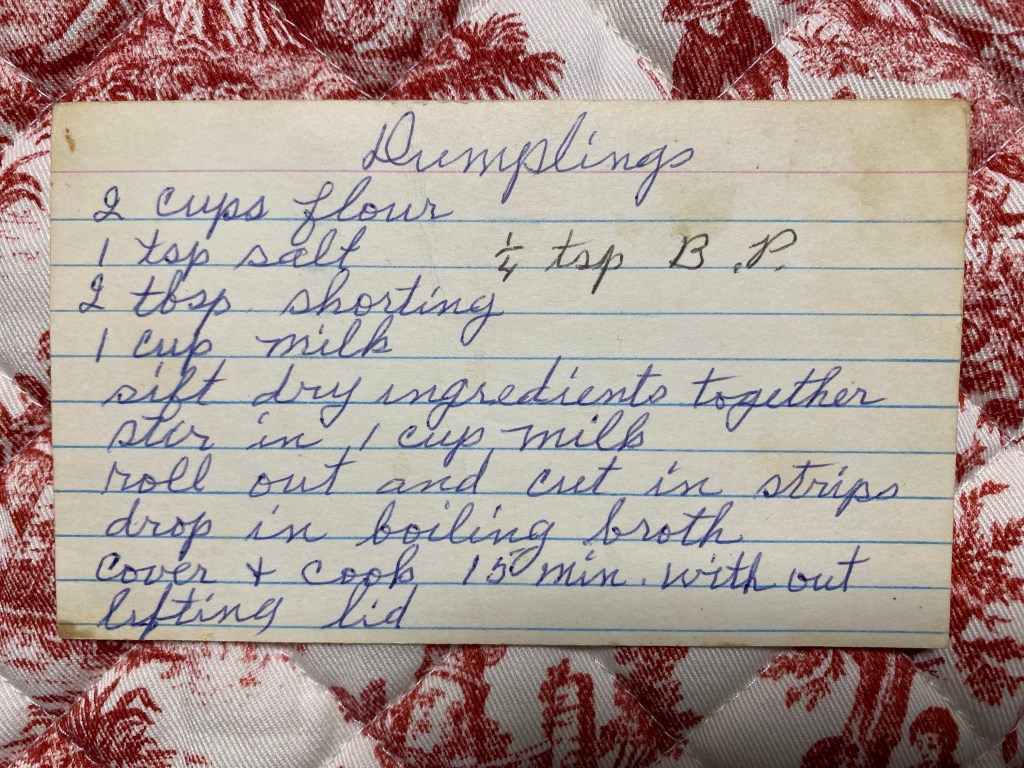 Dumplings
2 cups flour
1 tsp salt 1/4 tsp B.P.
2 tbsp shorting
1 cup milk
sift dry ingredients together
stir in 1 cup milk
roll out and cut in strips
drop in boiling broth
cover + cook 15 min. with out
lifting lid